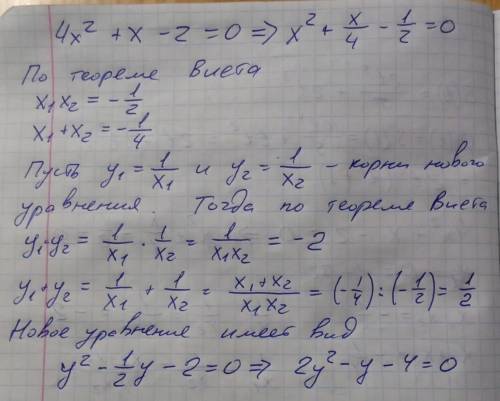 4x² + x - 2 = 0 => x² + x/4 - 1/2 = 0
По теореме Виета
x₁x₂ = -1/2
x₁+x₂ = -1/4
Пусть y₁ = 1/x₁ и y₂ = 1/x₂ - корни нового
уравнения. Тогда по теореме Виета
y₁·y₂ = 1/x₁ · 1/x₂ = 1/(x₁x₂) = -2
y₁+y₂ = 1/x₁ + 1/x₂ = (x₁+x₂)/(x₁x₂) = (-1/4):(-1/2) = 1/2
Новое уравнение имеет вид
y² - 1/2y - 2 = 0 => 2y² - y - 4 = 0